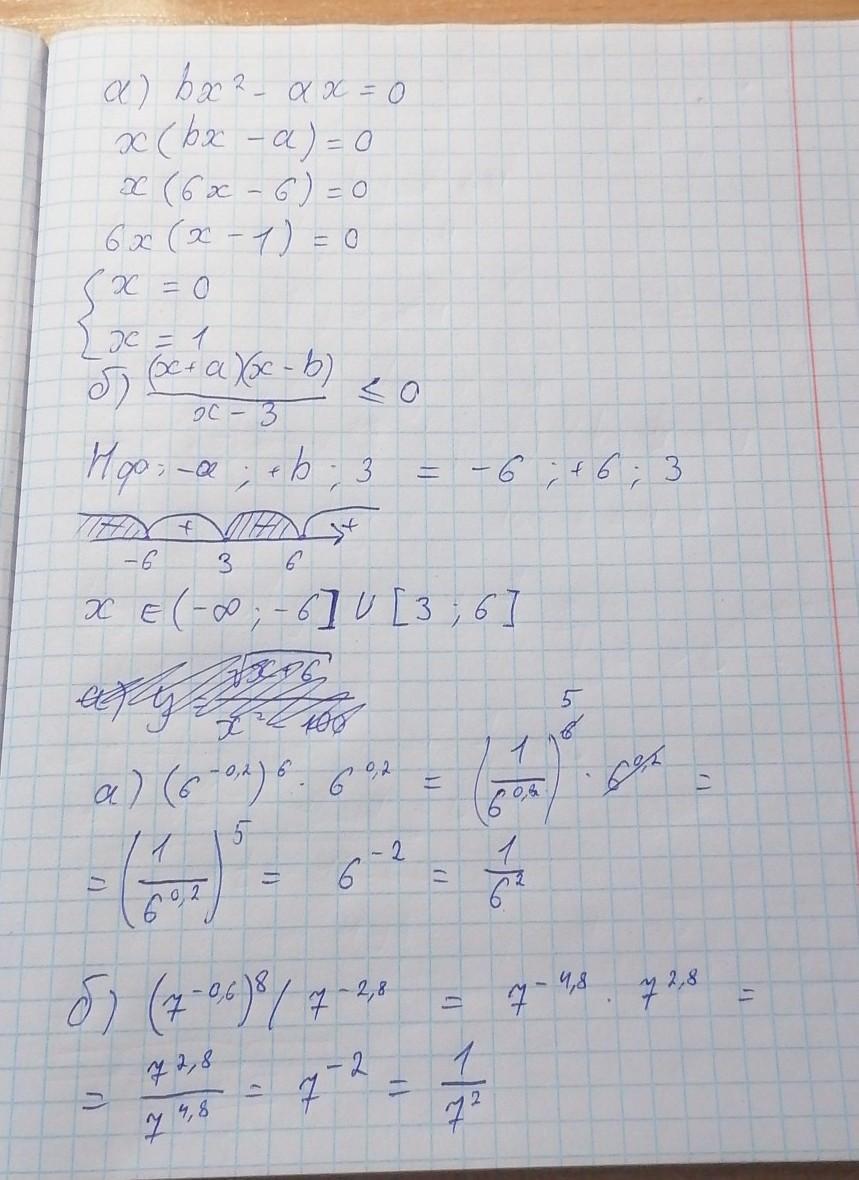 а) bx² - ax = 0
x(bx - a) = 0
x(6x - 6) = 0
6x(x - 1) = 0
{x = 0
x = 1
б) (x+a)(x-b) / x - 3 ≤ 0
Нфо: -a ; +b ; 3 = -6 ; +6 ; 3
+ +
-6 3 6
x ∈ (-∞ ; -6] ∪ [3 ; 6]
а) y = √x+6 / x² - 100
а) (6^-0,2)^6 · 6^0,2 = (1/6^0,2)^6 5 · 6^0,2 =
= (1/6^0,2)^5 = 6^-2 = 1/6²
б) (7^-0,6)^8 / 7^-2,8 = 7^-4,8 · 7^2,8 =
= 7^2,8 / 7^4,8 = 7^-2 = 1/7²